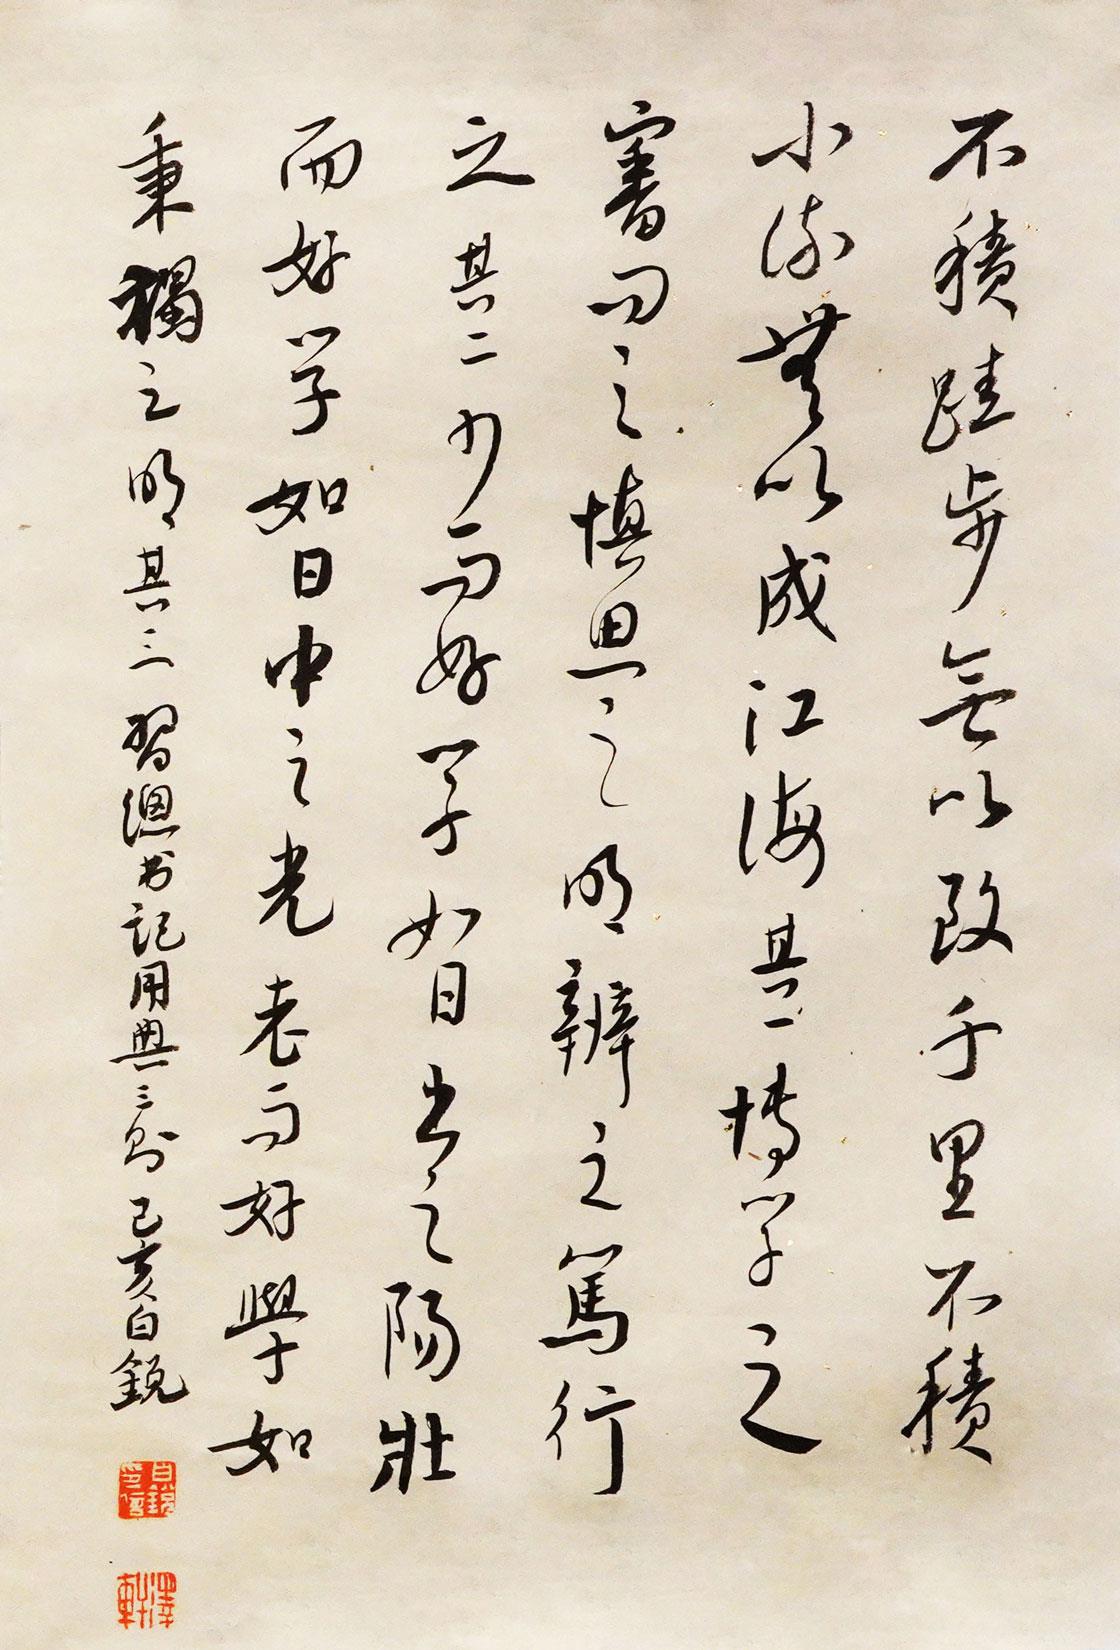 不積跬步無以致千里不積
小流無以成江海其一博学之
審问之慎思之明辨之篤行
之其二少而好学如日出之陽壯
而好学如日中之光老而好學如
秉燭之明其三習總书記用典三则己亥白鋭
白鋭印信
澤軒